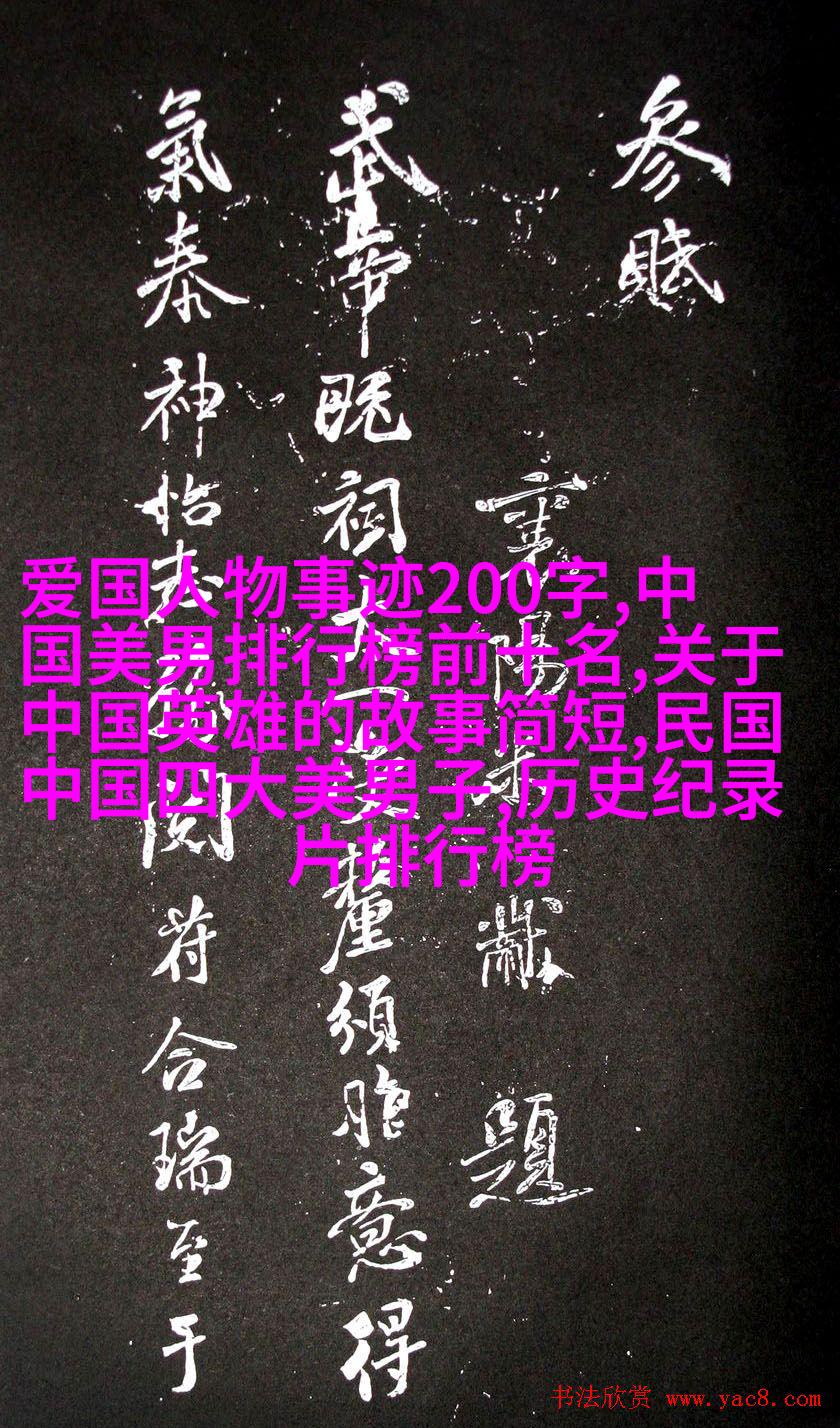 參賦
襄陽米黻 題
武帝既祠太一還釐頒胙意得
氣泰神怡志 閱符合瑞至于
爱国人物事迹200字,中
国美男排行榜前十名,关于
中国英雄的故事简短,民国
中国四大美男子,历史纪录
片排行榜
书法欣赏 www.yac8.com